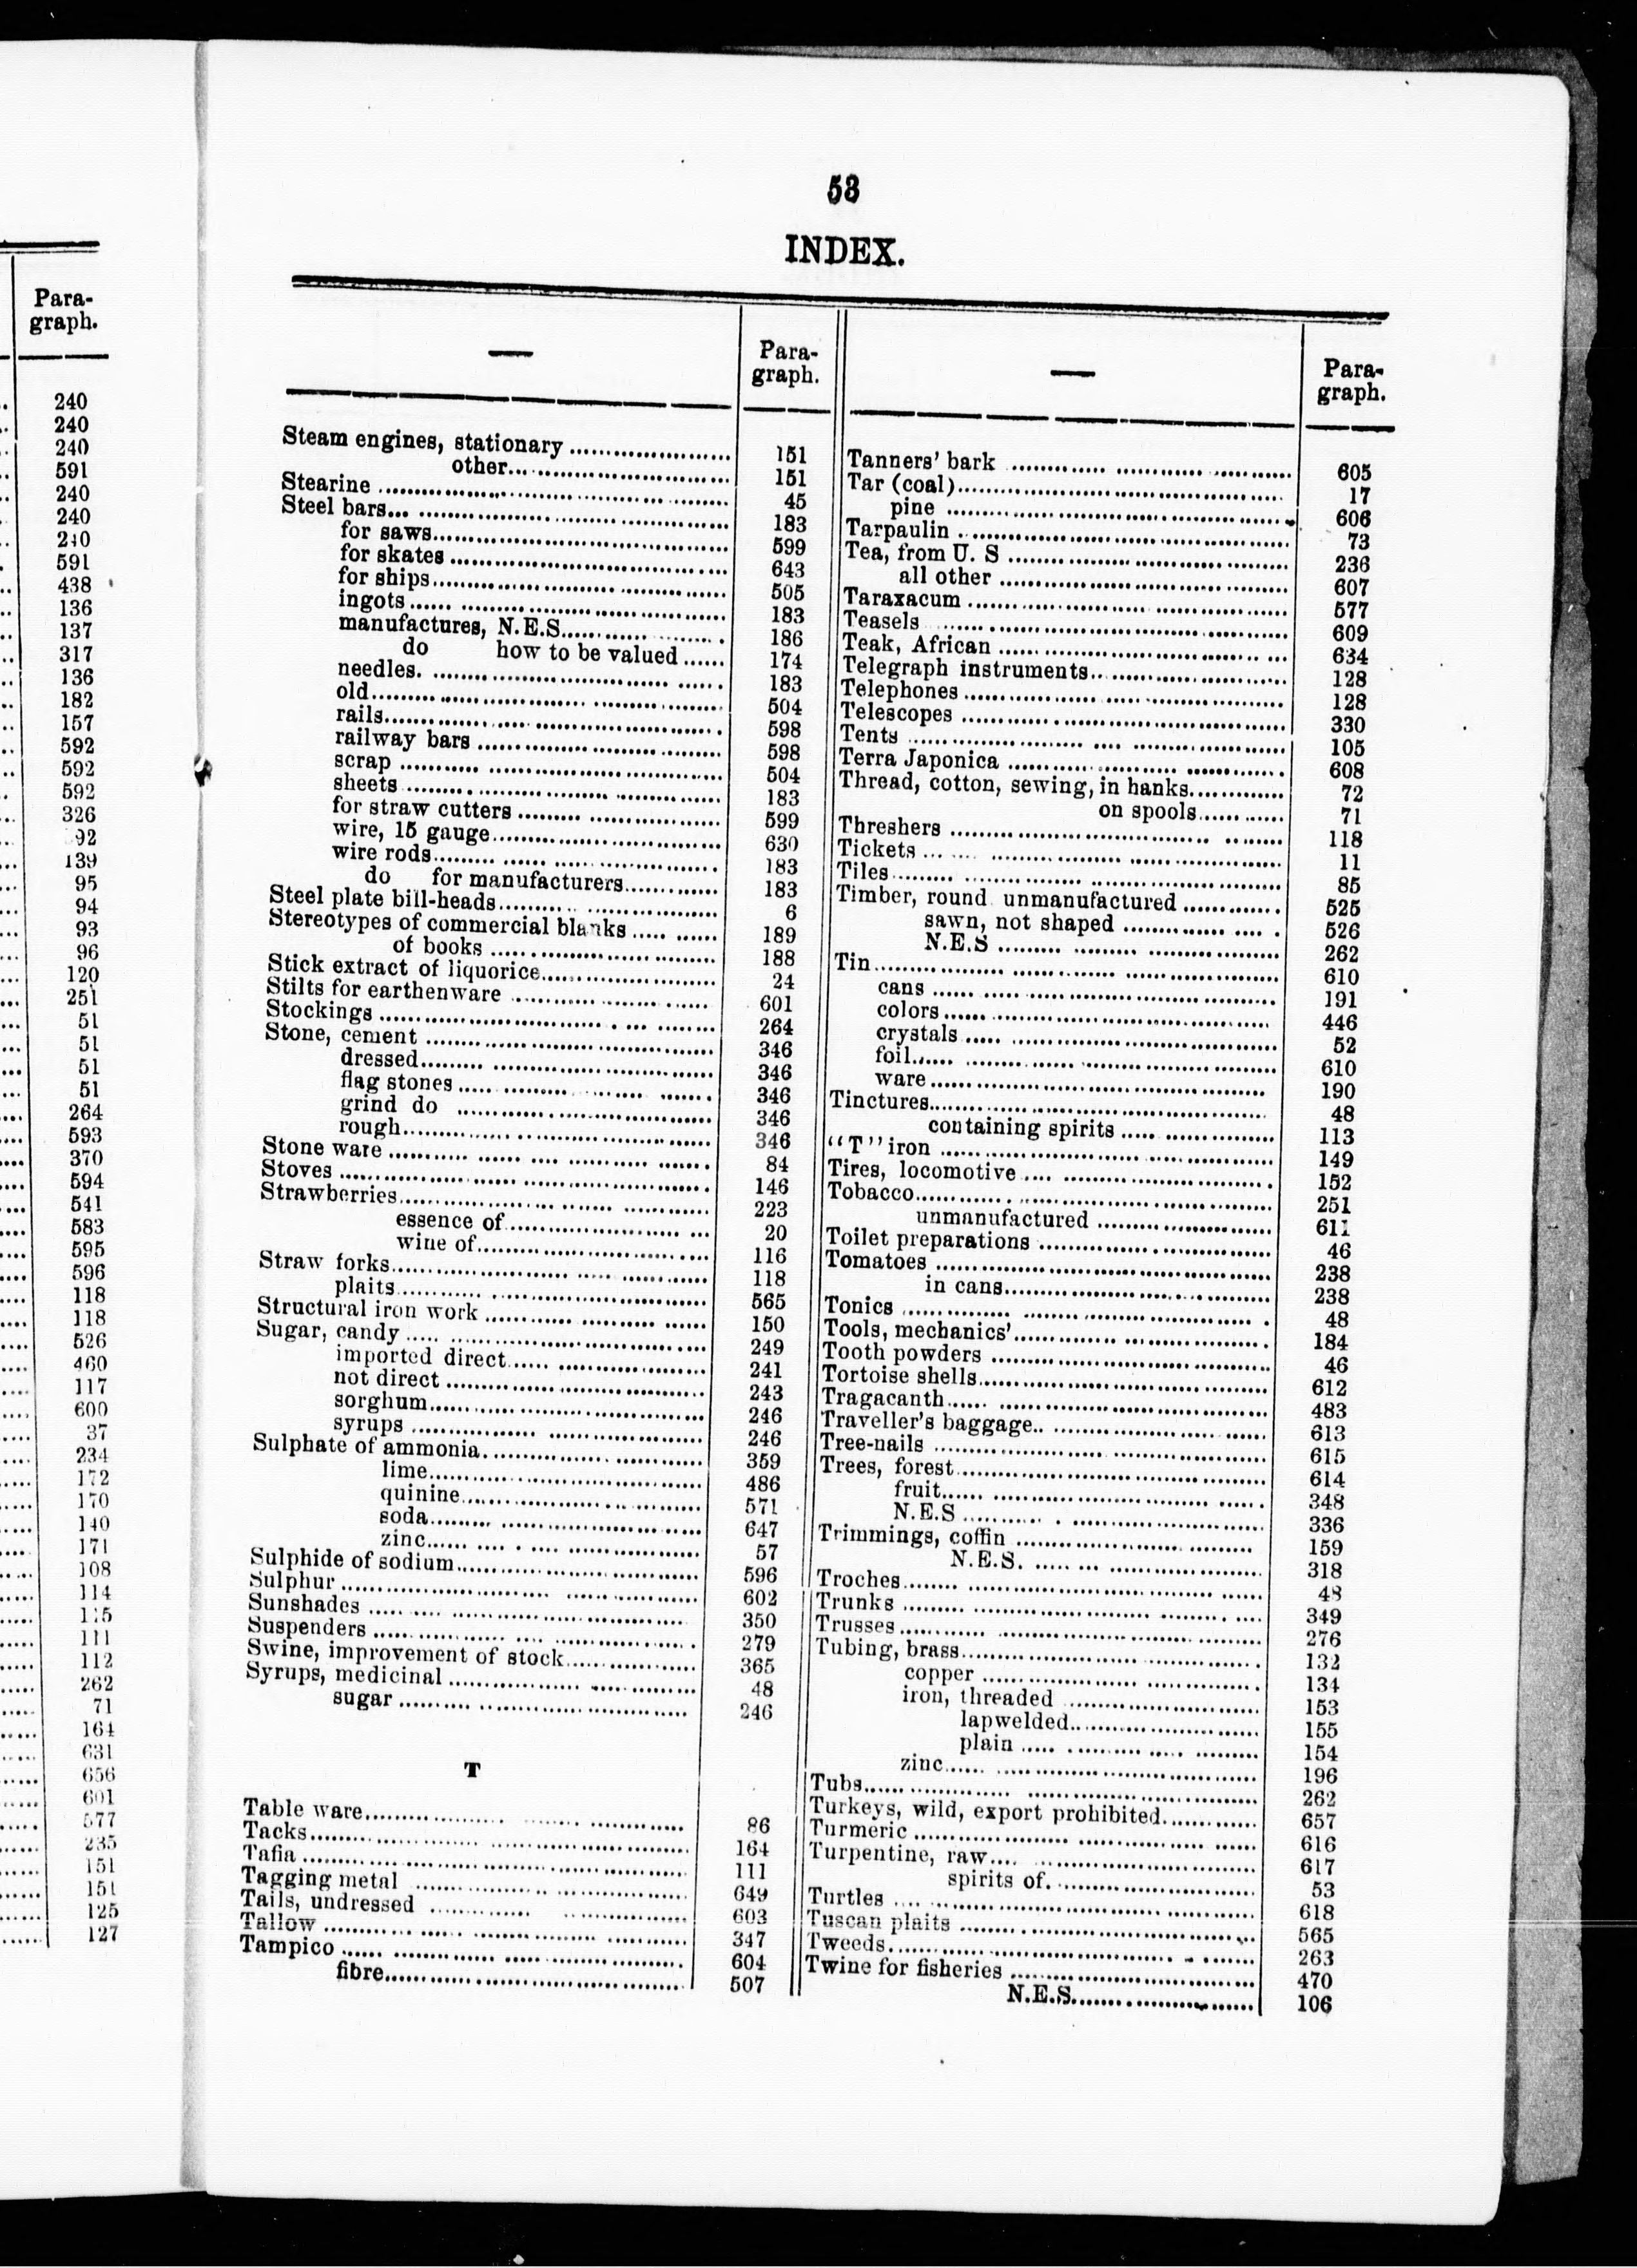 Para-
graph.
240
240
240
591
240
240
240
591
438
136
137
317
136
182
157
592
592
592
326
92
139
95
94
93
96
120
251
51
51
51
51
264
593
370
594
541
583
595
596
118
118
526
460
117
600
37
234
172
170
140
171
108
114
115
111
112
262
71
164
631
656
601
577
235
151
151
125
127
53
INDEX.
Para-
graph.
Steam engines, stationary ..................... 151
other........................ 151
Stearine ........................ 45
Steel bars........................ 183
for saws........................ 599
for skates ........................ 643
for ships........................ 505
ingots........................ 183
manufactures, N.E.S..................... 186
do how to be valued ...... 174
needles........................ 183
old........................ 504
rails........................ 598
railway bars ........................ 598
scrap ........................ 504
sheets ........................ 183
for straw cutters ........................ 599
wire, 15 gauge........................ 630
wire rods........................ 183
do for manufacturers............. 183
Steel plate bill-heads........................ 6
Stereotypes of commercial blanks ............ 189
of books ........................ 188
Stick extract of liquorice........................ 24
Stilts for earthenware ........................ 601
Stockings ........................ 264
Stone, cement ........................ 346
dressed........................ 346
flag stones ........................ 346
grind do ........................ 346
rough........................ 346
Stone ware ........................ 84
Stoves ........................ 146
Strawberries........................ 223
essence of........................ 20
wine of........................ 116
Straw forks........................ 118
plaits........................ 565
Structural iron work ........................ 150
Sugar, candy ........................ 249
imported direct........................ 241
not direct ........................ 243
sorghum........................ 246
syrups ........................ 246
Sulphate of ammonia........................ 359
lime........................ 486
quinine........................ 571
soda........................ 647
zinc........................ 57
Sulphide of sodium........................ 596
Sulphur ........................ 602
Sunshades ........................ 350
Suspenders ........................ 279
Swine, improvement of stock.................. 365
Syrups, medicinal ........................ 48
sugar ........................ 246
T
Table ware........................ 86
Tacks........................ 164
Tafia ........................ 111
Tagging metal ........................ 649
Tails, undressed ........................ 603
Tallow ........................ 347
Tampico ........................ 604
fibre........................ 507
Para-
graph.
Tanners' bark ........................ 605
Tar (coal)........................ 17
pine ........................ 606
Tarpaulin ........................ 73
Tea, from U. S ........................ 236
all other ........................ 607
Taraxacum ........................ 577
Teasels ........................ 609
Teak, African ........................ 634
Telegraph instruments........................ 128
Telephones ........................ 128
Telescopes ........................ 330
Tents ........................ 105
Terra Japonica ........................ 608
Thread, cotton, sewing, in hanks............. 72
on spools............ 71
Threshers ........................ 118
Tickets ........................ 11
Tiles........................ 85
Timber, round unmanufactured ............. 525
sawn, not shaped ................. 526
N.E.S ........................ 262
Tin........................ 610
cans ........................ 191
colors........................ 446
crystals ........................ 52
foil........................ 610
ware........................ 190
Tinctures........................ 48
containing spirits ................. 113
"T" iron ........................ 149
Tires, locomotive ........................ 152
Tobacco........................ 251
unmanufactured ..................... 611
Toilet preparations ........................ 46
Tomatoes ........................ 238
in cans........................ 238
Tonics ........................ 48
Tools, mechanics'........................ 184
Tooth powders ........................ 46
Tortoise shells........................ 612
Tragacanth........................ 483
Traveller's baggage........................ 613
Tree-nails ........................ 615
Trees, forest........................ 614
fruit........................ 348
N.E.S ........................ 336
Trimmings, coffin ........................ 159
N.E.S. ........................ 318
Troches........................ 48
Trunks ........................ 349
Trusses ........................ 276
Tubing, brass........................ 132
copper ........................ 134
iron, threaded ........................ 153
lapwelded........................ 155
plain ........................ 154
zinc........................ 196
Tubs........................ 262
Turkeys, wild, export prohibited............. 657
Turmeric ........................ 616
Turpentine, raw........................ 617
spirits of........................ 53
Turtles ........................ 618
Tuscan plaits ........................ 565
Tweeds........................ 263
Twine for fisheries ........................ 470
N.E.S........................ 106